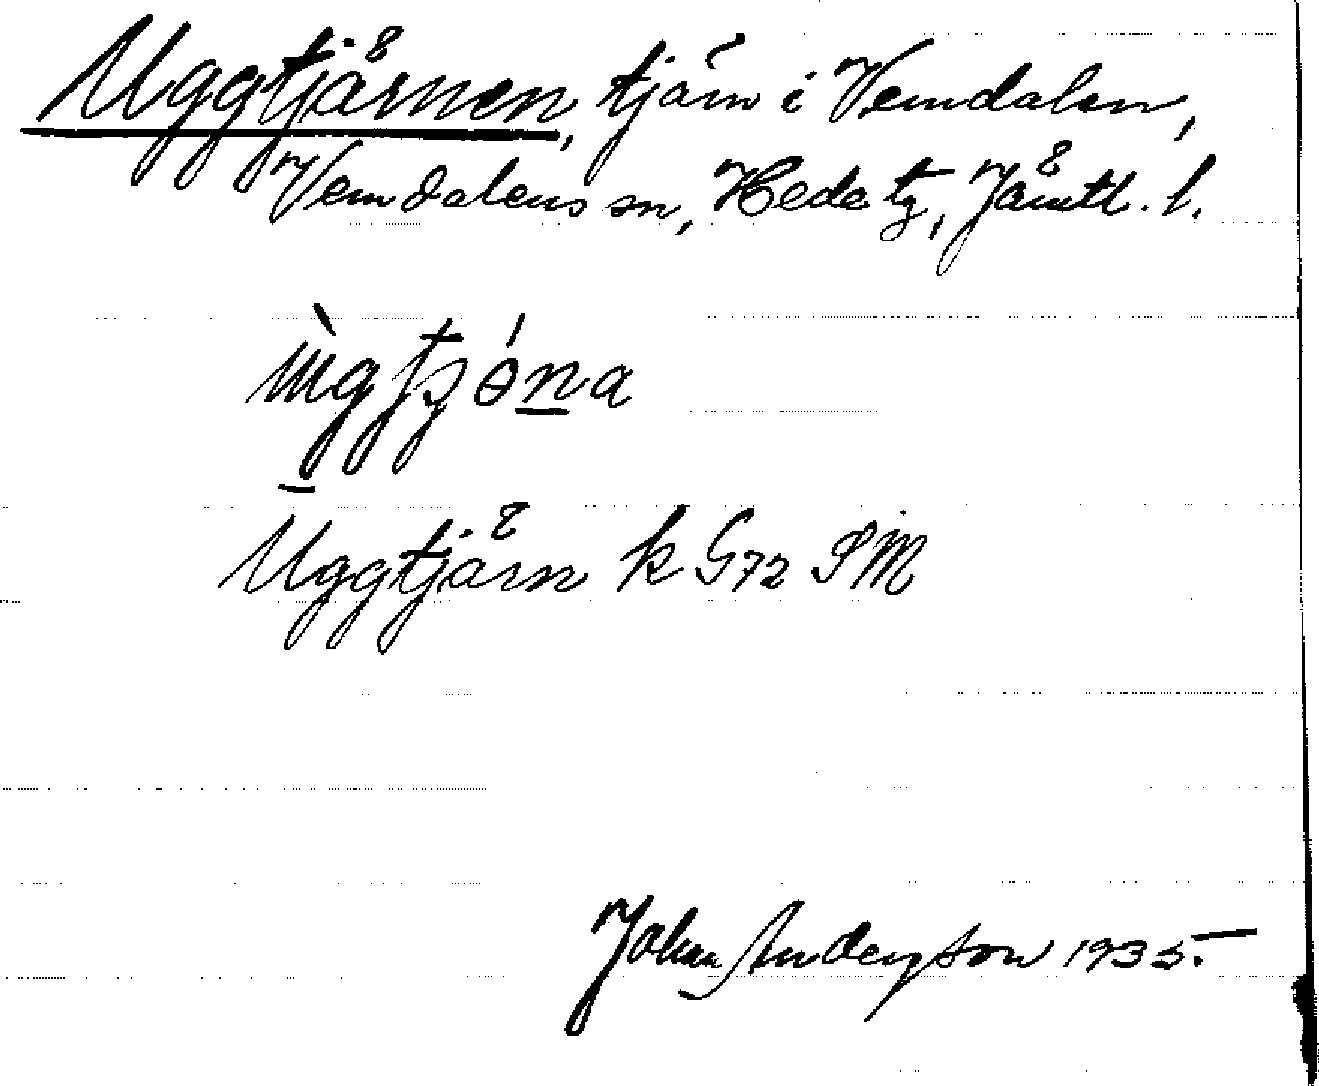 Uggtjärnen, tjärn i Vemdalen,
Vemdalens sn, Hede tg, Jämtl. l.
Uggtjärn k G72 SM
Johan Anderson 1935.